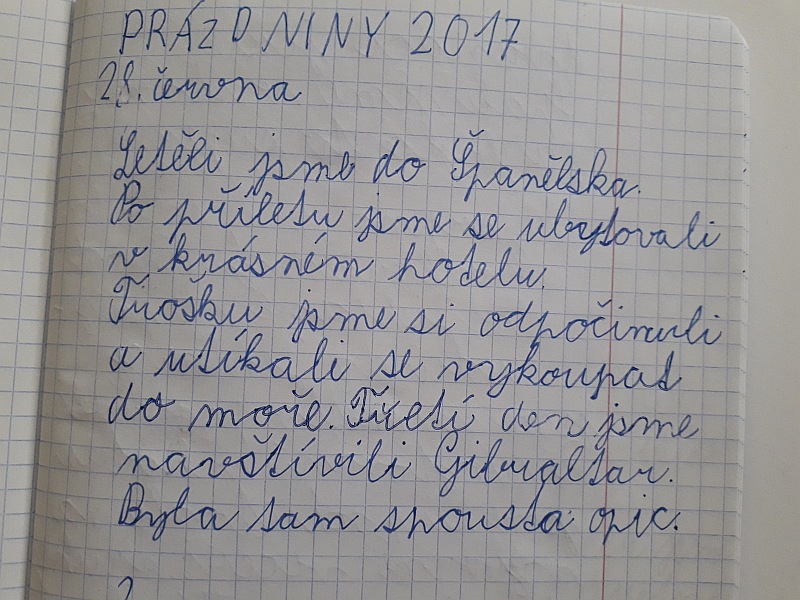 PRÁZDNINY 2017
28. června
Letěli jsme do Španělska.
Po příletu jsme se ubytovali
v krásném hotelu.
Trošku jsme si odpočinuli
a utíkali se vykoupat
do moře. Třetí den jsme
navštívili Gibraltar.
Byla tam spousta opic.